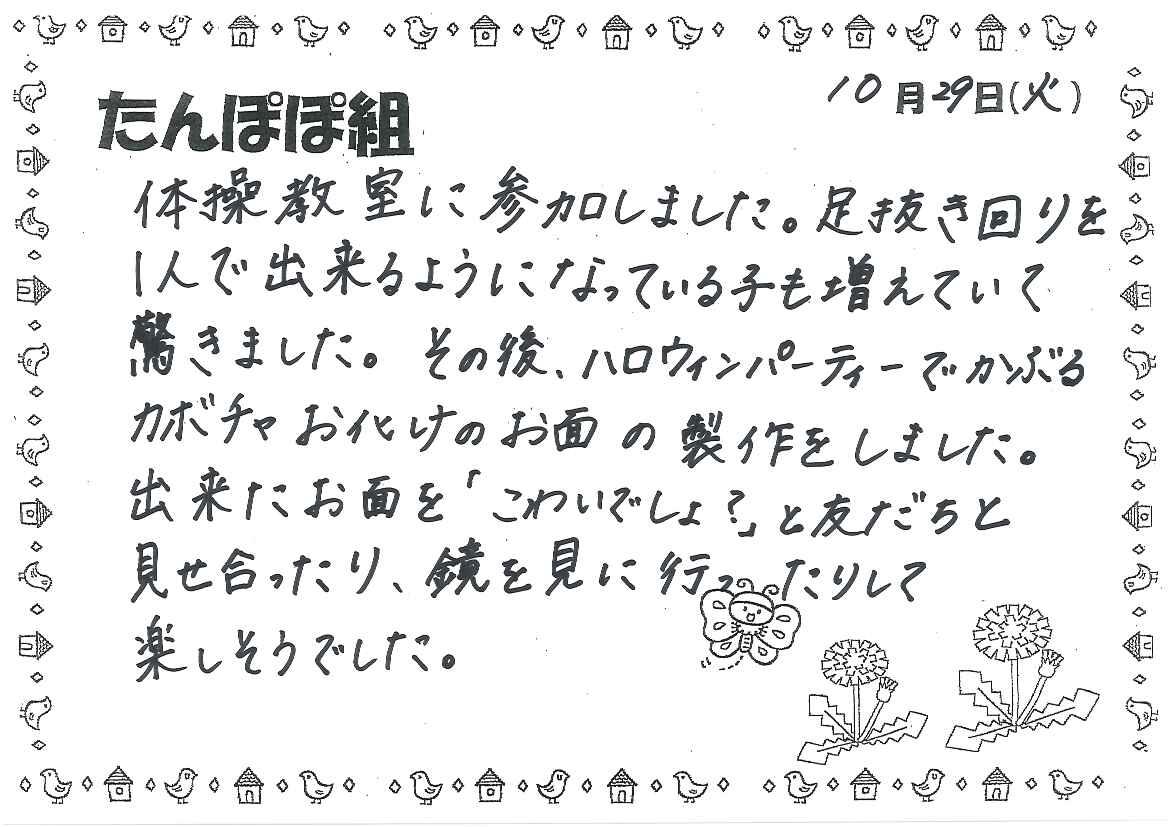 10月29日(火)
たんぽぽ組
体操教室に参加しました。足抜き回りを
1人で出来るようになっている子も増えていて
驚きました。その後、ハロウィンパーティーでかぶる
カボチャお化けのお面の製作をしました。
出来たお面を「こわいでしょ?」と友だちと
見せ合ったり、鏡を見に行ったりして
楽しそうでした。